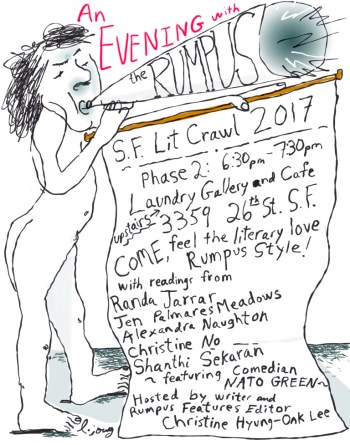 An
EVENING with
the RUMPUS
S.F. Lit Crawl 2017
Phase 2: 6:30pm - 7:30pm
Laundry Gallery and Cafe
upstairs 3359 26th St. S.F.
COME, feel the literary love
Rumpus Style!
with readings from
Randa Jarrar
Jen Palmares Meadows
Alexandra Naughton
Christine No
Shanthi Sekaran
~ featuring Comedian
NATO GREEN ~
Hosted by writer and
Rumpus Features Editor
Christine Hyung-Onk Lee